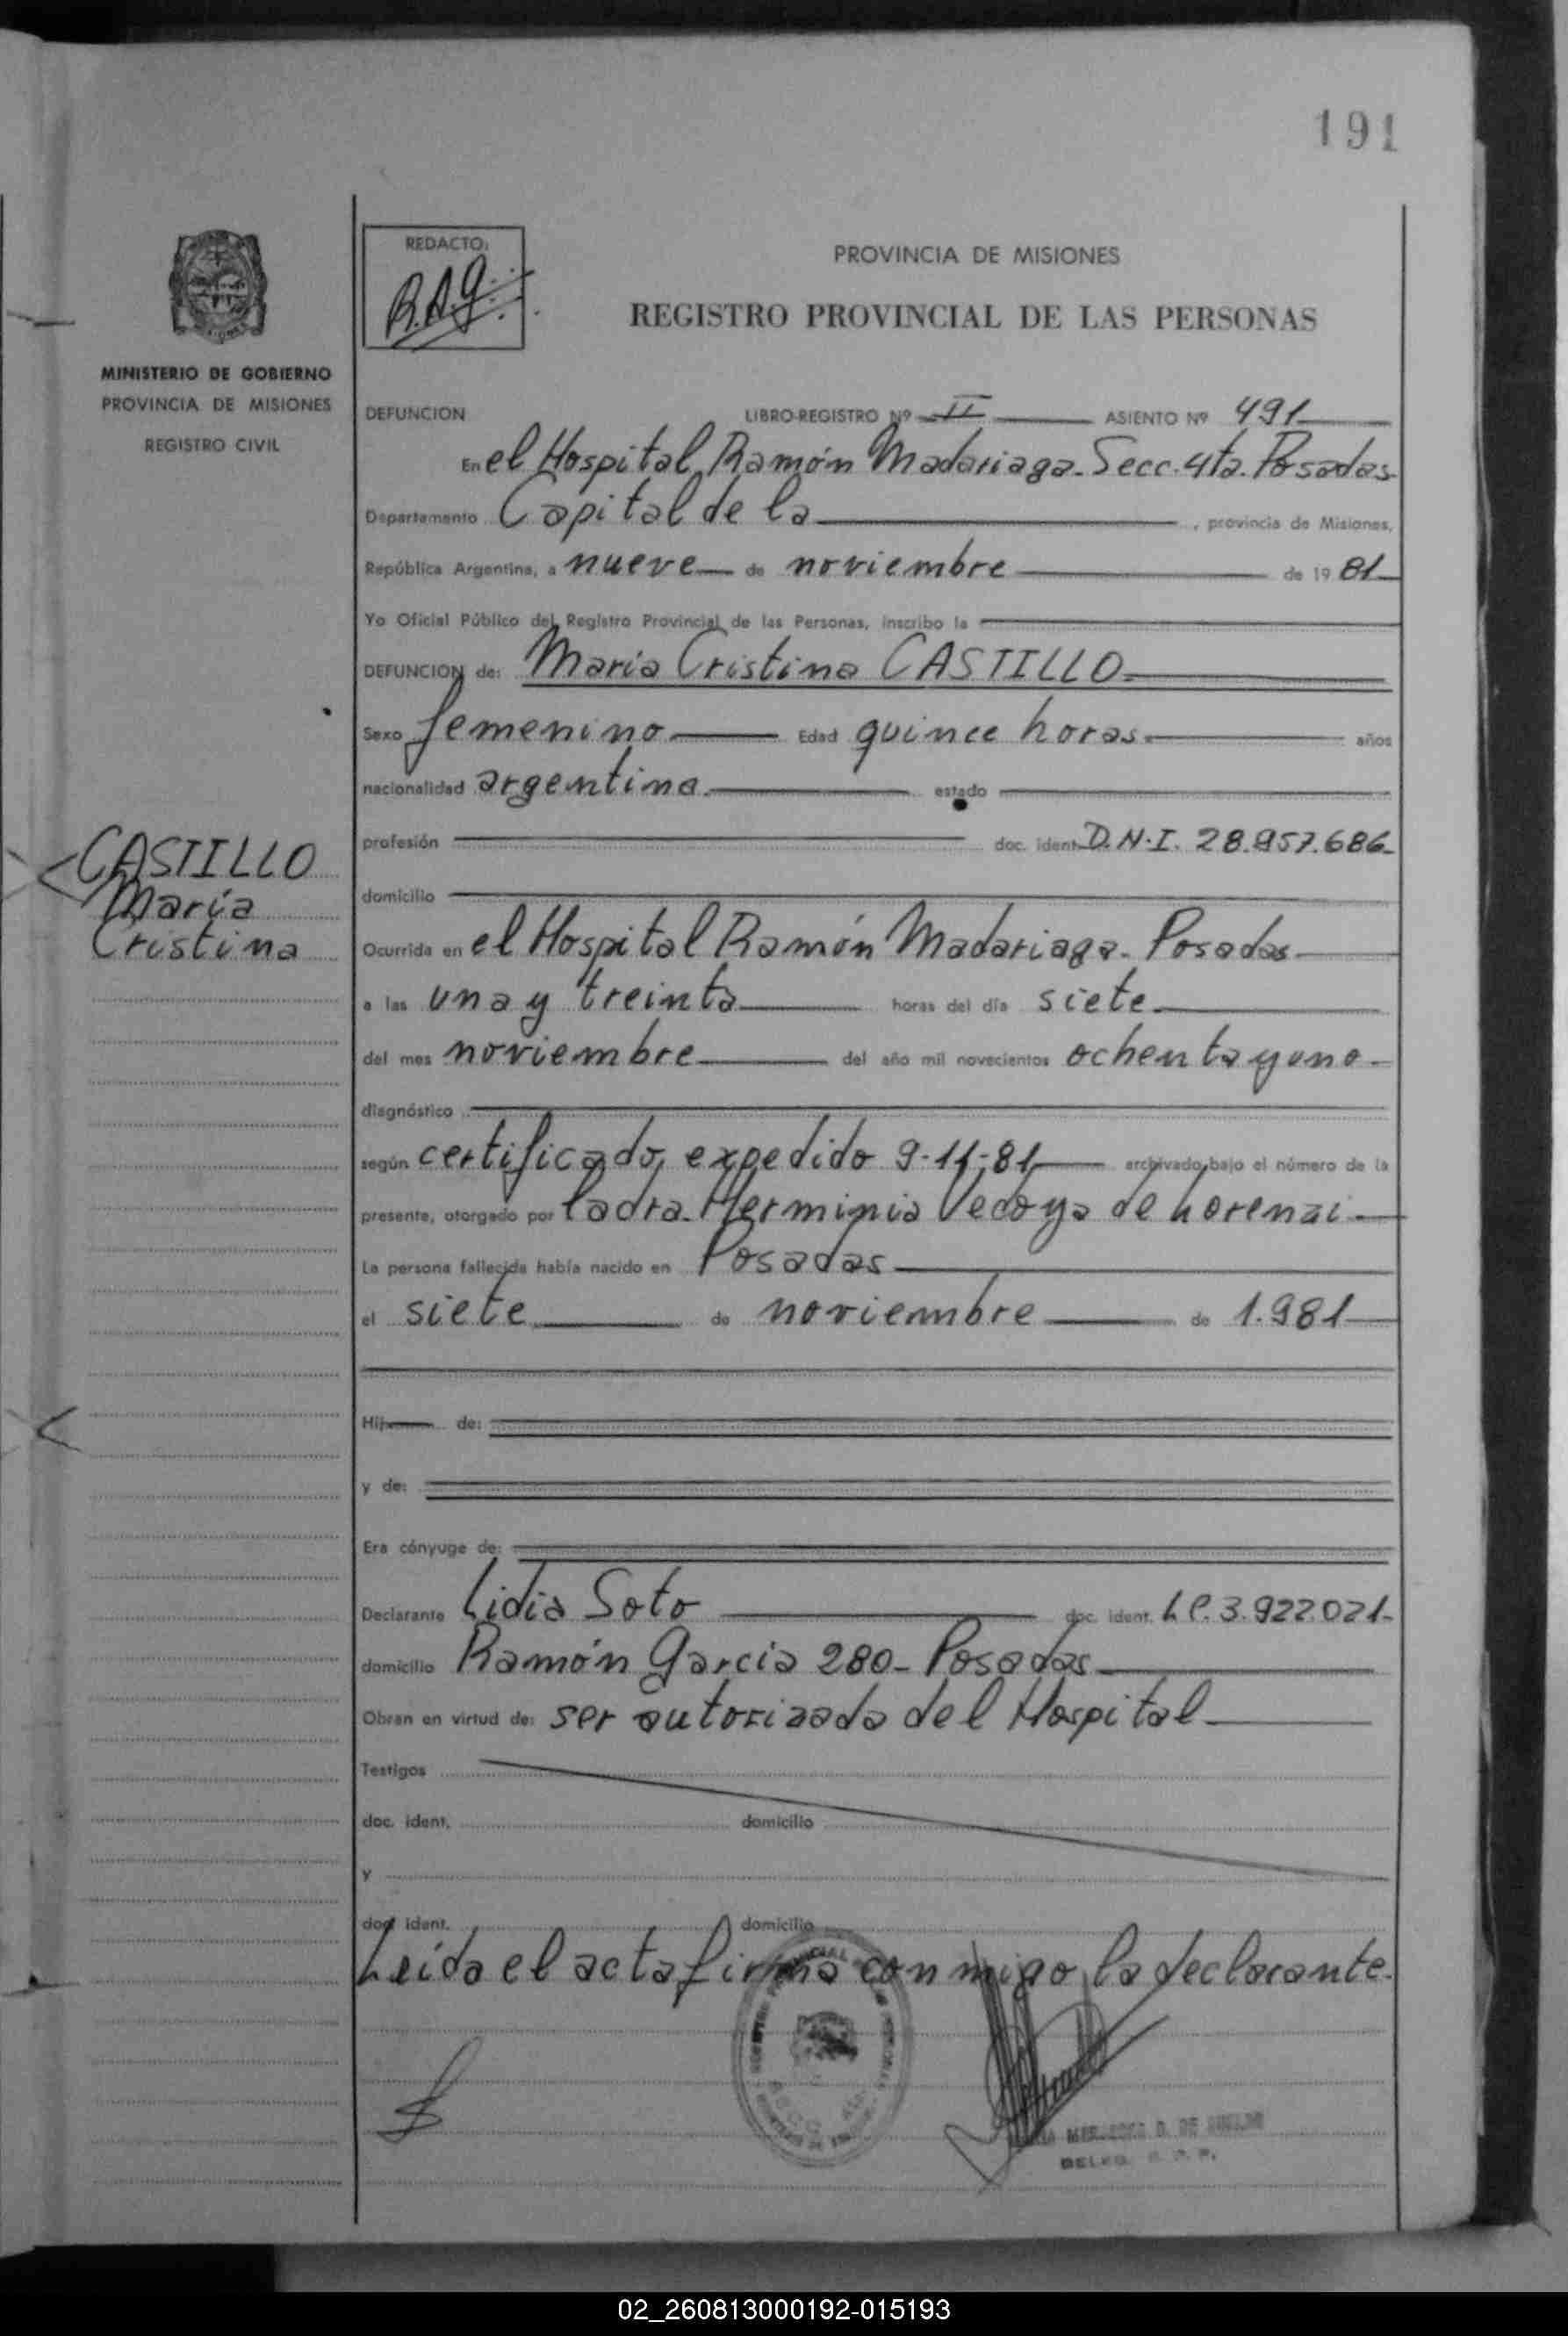 191
MINISTERIO DE GOBIERNO
PROVINCIA DE MISIONES
REGISTRO CIVIL
CASTILLO
María
Cristina
REDACTO:
R.A.G.
PROVINCIA DE MISIONES
REGISTRO PROVINCIAL DE LAS PERSONAS
DEFUNCION LIBRO-REGISTRO Nº II ASIENTO Nº 491
En el Hospital Ramón Madariaga - Secc. 4ta. Posadas
Departamento Capital de la , provincia de Misiones,
República Argentina, a nueve de noviembre de 19 81
Yo Oficial Público del Registro Provincial de las Personas, inscribo la
DEFUNCION de: Maria Cristina CASTILLO
Sexo femenino Edad quince horas. años
nacionalidad argentina estado
profesión doc. ident. D.N.I. 28.957.686
domicilio
Ocurrida en el Hospital Ramón Madariaga - Posadas
a las una y treinta horas del día siete
del mes noviembre del año mil novecientos ochenta y uno
diagnóstico
según certificado, expedido 9-11-81, archivado bajo el número de la
presente, otorgado por la dra. Herminia Vedoya de
La persona fallecida había nacido en Posadas
el siete de noviembre de 1.981
Hij de:
y de:
Era cónyuge de:
Declarante Lidia Soto doc. ident. L.C. 3.922.021-
domicilio Ramón Garcia 280 - Posadas
Obran en virtud de: ser autorizada del Hospital
Testigos
doc. ident. domicilio
y
doc. ident. domicilio
Leída el acta firma conmigo la declarante.
DE
DELEG.
02_260813000192-015193